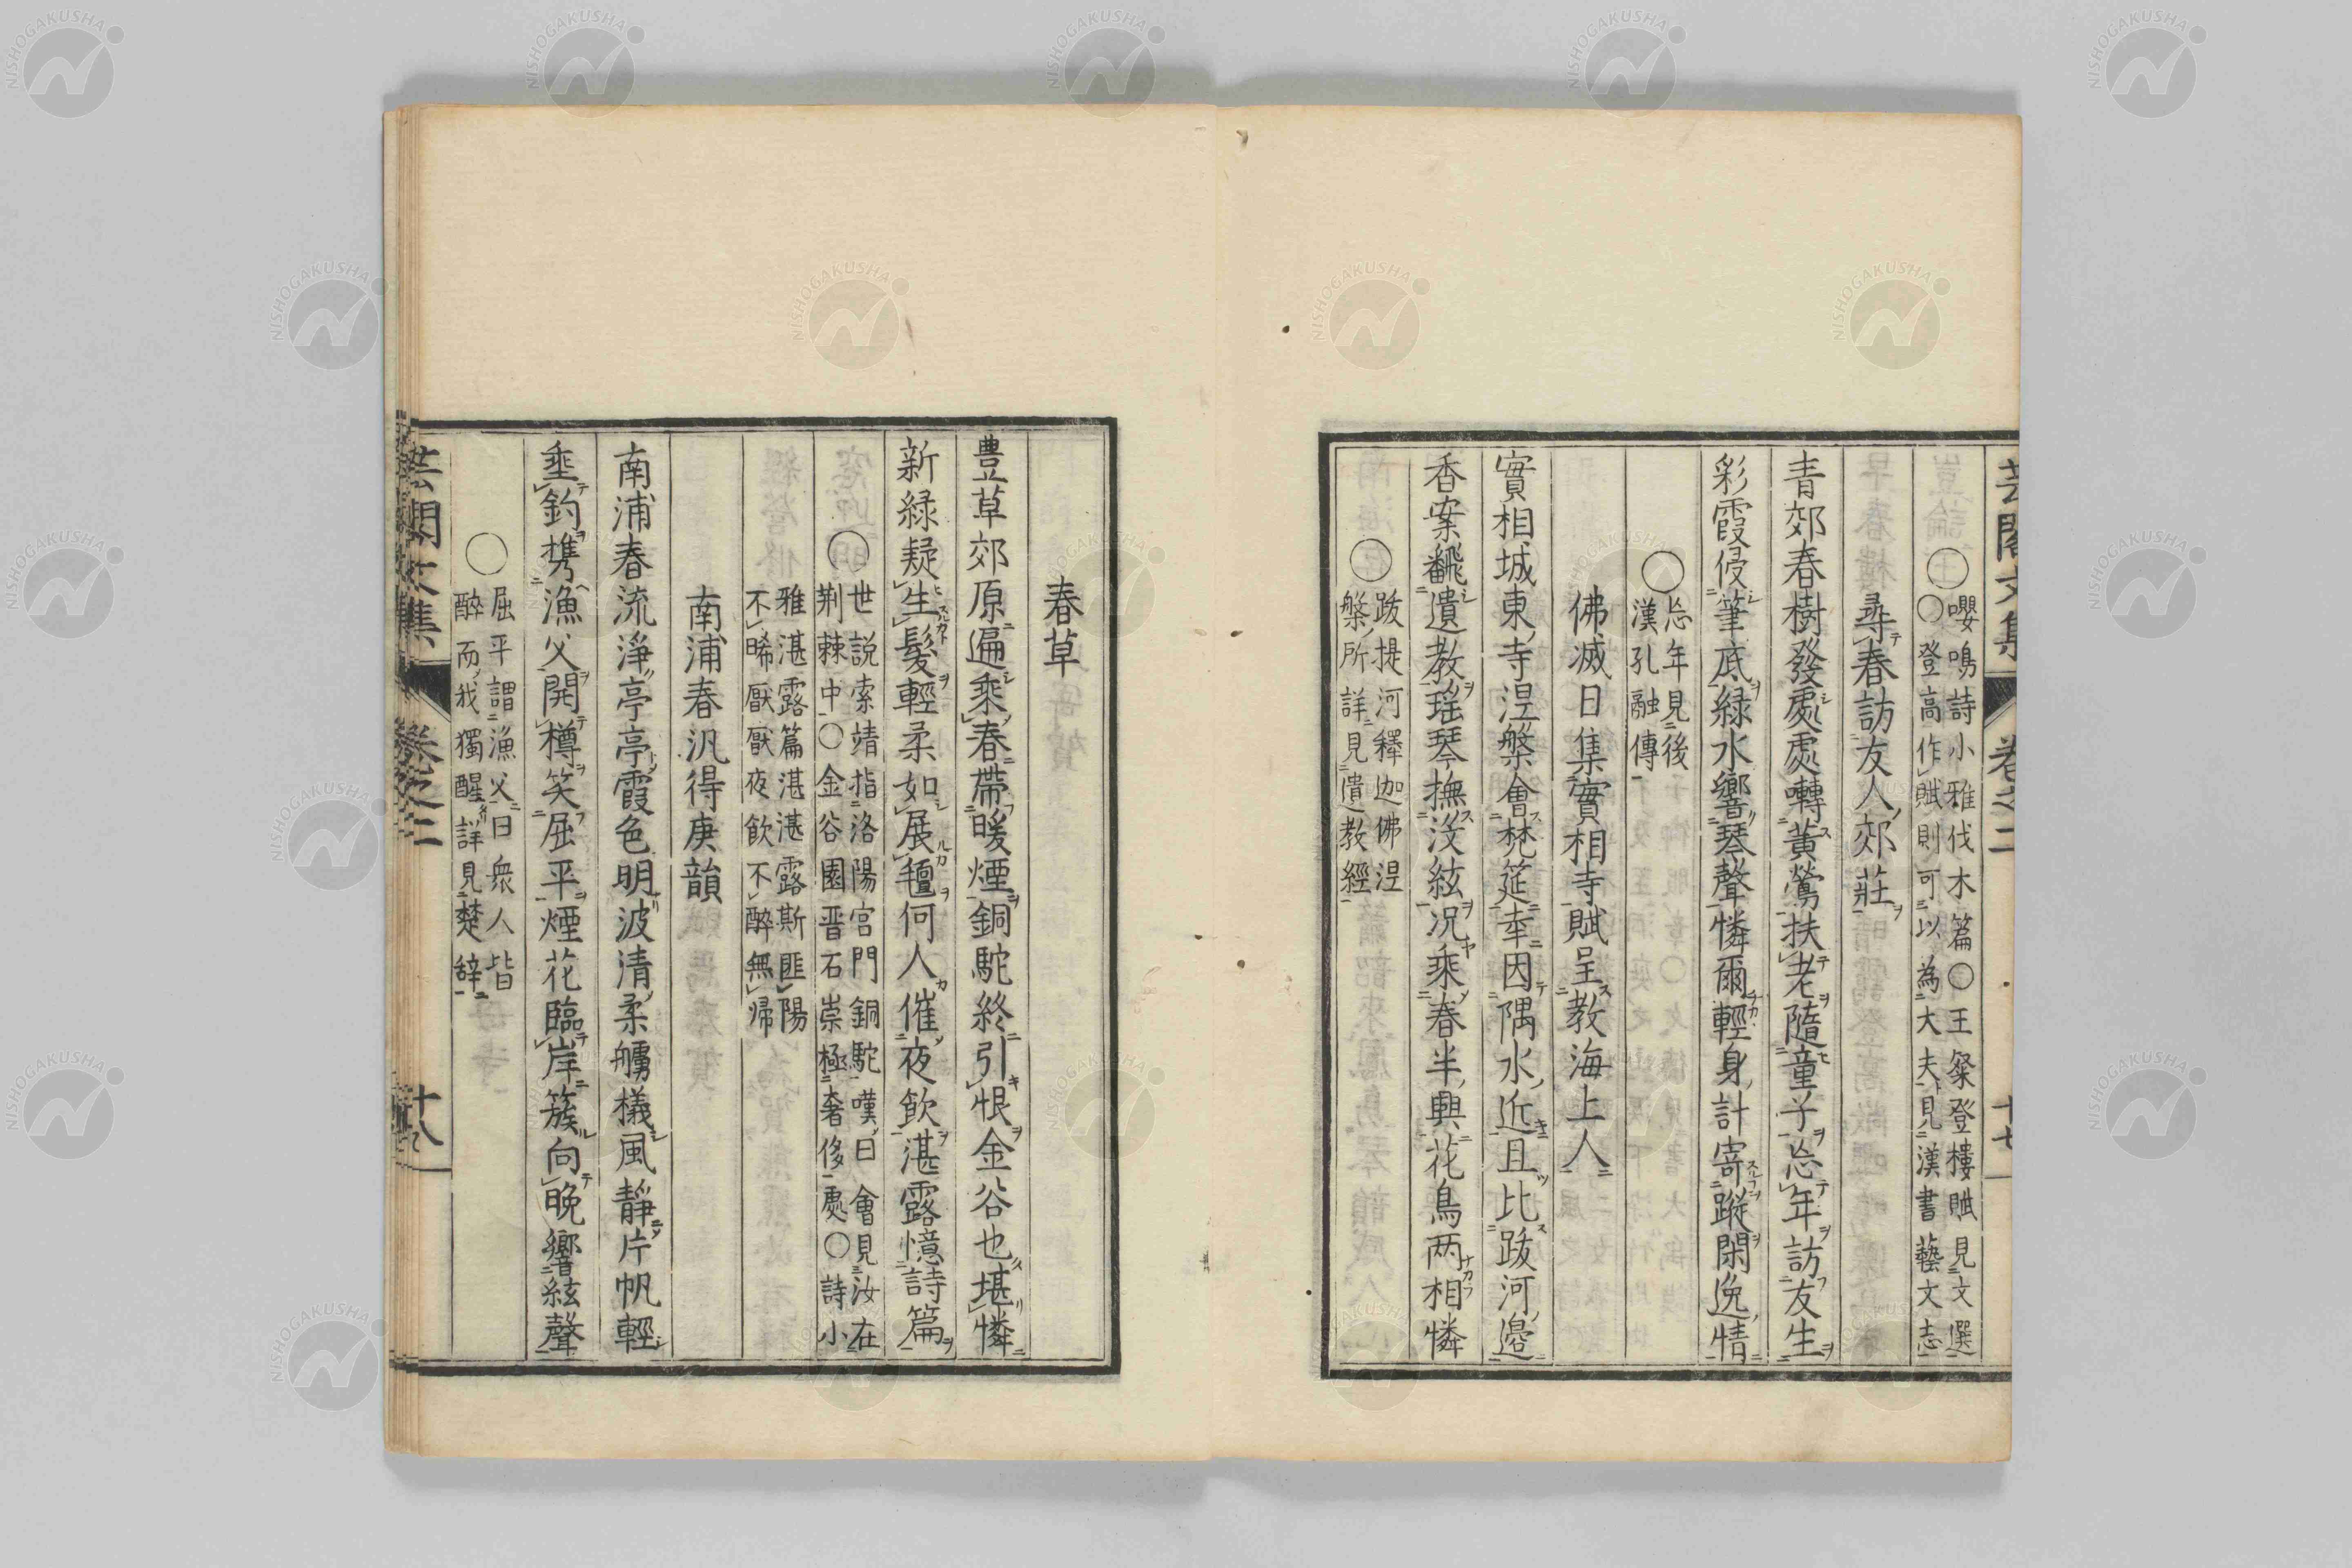 芸閣文集 卷之二 十七
○嚶鳴詩小雅伐木篇○王粲登樓賦見文選
○登高作賦則可以為大夫見漢書藝文志
尋春訪友人郊莊
青郊春樹發處處囀黃鶯扶老隨童子忘年訪友生
彩霞侵筆底緑水響琴聲憐爾輕身計寄蹤閑逸情
○忘年見後
漢孔融傳
佛滅日集實相寺賦呈教海上人
實相城東寺涅槃會梵筵幸因隅水近且比跋河邊
香案飜遺教瑶琴撫沒絃況乘春半興花鳥两相憐
○跋提河釋迦佛涅
槃所詳見遺教經
春草
豊草郊原遍乘春帶暖煙銅駝終引恨金谷也堪憐
新緑疑生髮輕柔如展氊何人催夜飲湛露憶詩篇
○世説索靖指洛陽宮門銅駝嘆曰會見汝在
荆棘中○金谷園晋石崇極奢侈處○詩小
雅湛露篇湛湛露斯匪陽
不晞厭厭夜飲不醉無帰
南浦春汎得庚韻
南浦春流淨亭亭霞色明波清柔艣樣風靜片帆輕
垂釣携漁父開樽笑屈平煙花臨岸簇向晩響絃聲
○屈平謂漁父曰衆人皆
醉而我獨醒詳見楚辞
芸閣文集 卷之二 十八
NISHOGAKUSHA